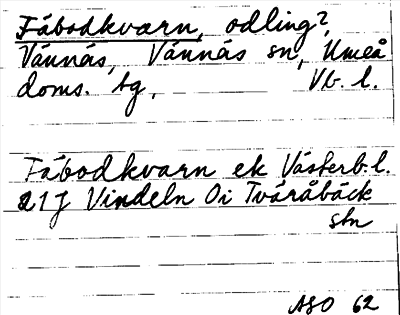 Fäbodkvarn, odling?,
Vännäs, Vännäs sn, Umeå
doms. tg, Vb. l.
Fäbodkvarn ek Västerb. l.
21J Vindeln Öi Tväråbäck
stn
ASO 62